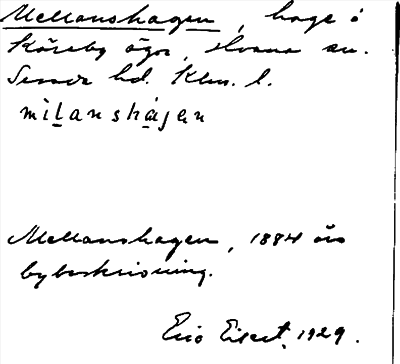 Mellanshagen, hage å
Kåreby ägor, 
Sevede hd. Klm. l.
mìlanshájen
Mellanshagen, 1884 års
bybeskrivning.
Eric Eisert. 1929.